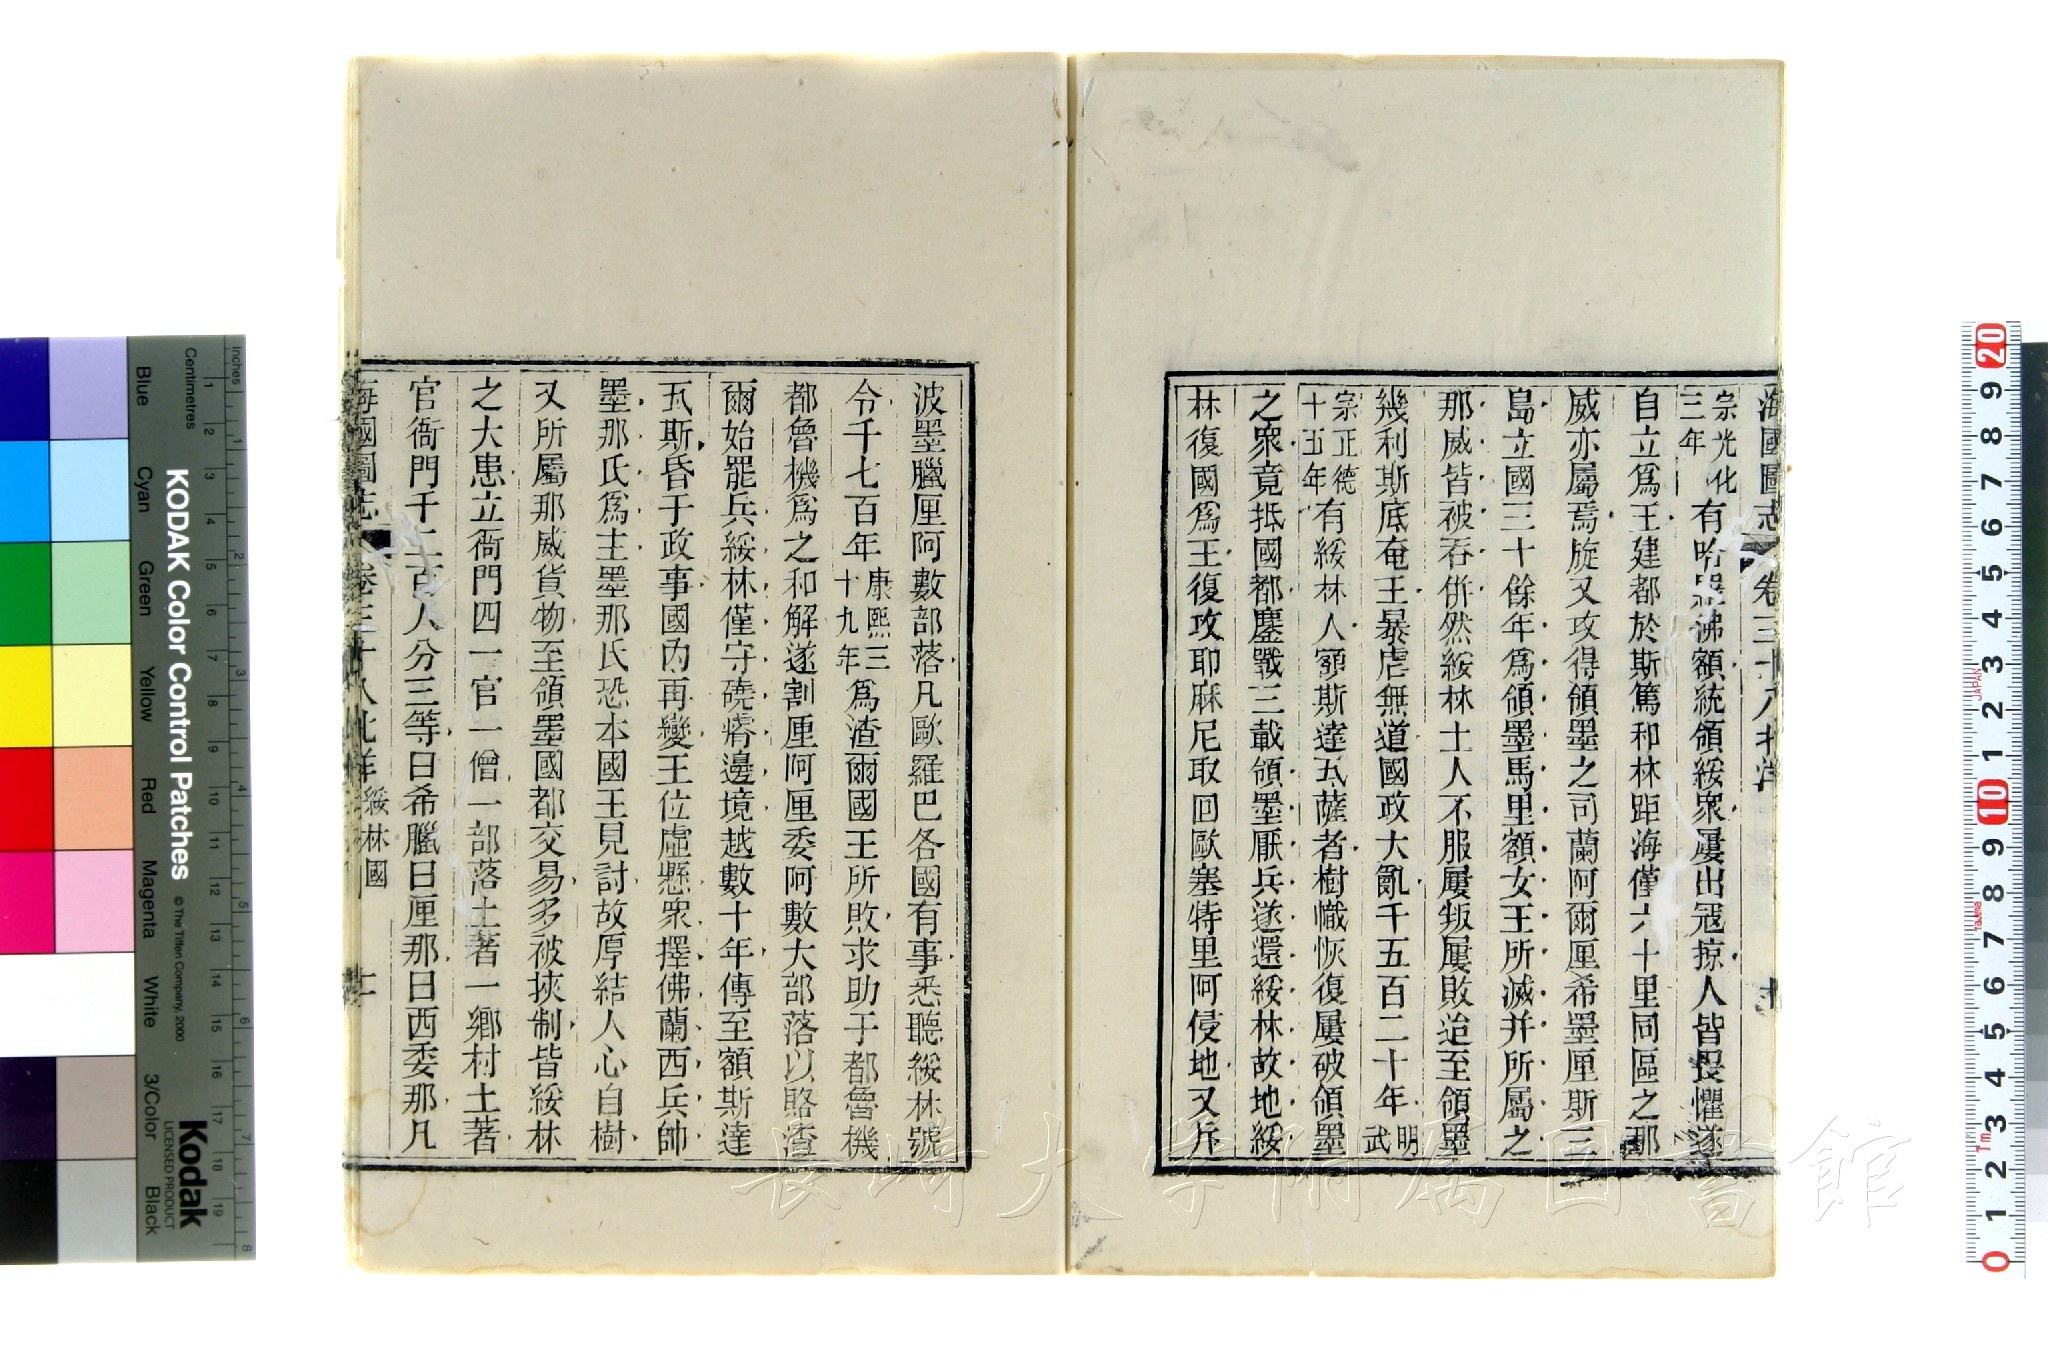 海國圖志 卷三十八北洋
宗光化三年有哈墨沸額統領綏衆屢出冦掠人皆畏懼遂
自立爲王建都於斯篤和林距海僅六十里同區之那
威亦屬焉旋又攻得領墨之司蘭阿爾厘希墨厘斯三
島立國三十餘年爲領墨馬里額女王所滅并所屬之
那威皆被吞併然綏林土人不服屢叛屢敗迨至領墨
幾利斯底奄王暴虐無道國政大亂千五百二十年明武
宗正德十五年有綏林人額斯達瓦薩者樹幟恢復屢破領墨
之衆竟抵國都鏖戰三載領墨厭兵遂還綏林故地綏
林復國爲王復攻耶麻尼取回歐塞特里阿侵地又斥
波墨臘厘阿數部落凡歐羅巴各國有事悉聽綏林號
令千七百年康熙三十九年爲渣爾國王所敗求助于都魯機
都魯機爲之和解遂割厘阿厘委阿數大部落以賂渣
爾始罷兵綏林僅守磽瘠邊境越數十年傳至額斯達
瓦斯昏于政事國內再變王位虛懸衆擇佛蘭西兵帥
墨那氏爲主墨那氏恐本國王見討故厚結人心自樹
又所屬那威貨物至領墨國都交易多被挾制皆綏林
之大患立衙門四一官一僧一部落土著一鄉村土著
官衙門千二百人分三等曰希臘曰厘那曰西委那凡
海國圖志 卷三十八北洋 綏林國 十一
長崎大学附属図書館
KODAK Color Control Patches
© The Tiffen Company, 2000
Kodak
LICENSED PRODUCT
Inches
Centimetres
Blue
Cyan
Green
Yellow
Red
Magenta
White
3/Color
Black
JAPAN